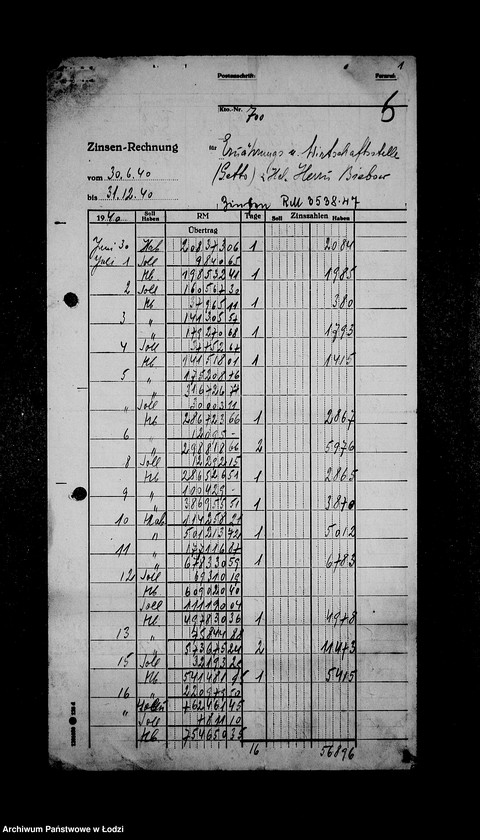 1
Postanschrift:
Kto.-Nr. 700
6
Zinsen-Rechnung
für Ernährungs u. Wirtschaftsstelle
vom 30.6.40
(Getto) z.Hd. Herrn Biebow
bis 31.12.40
Zinsen RM 3538.47
1940 Soll Haben RM Tage Soll Zinszahlen Haben
Übertrag
Juni 30 Hab 208373 06 1 2084
Juli 1 Soll 9840 65
Hb 198532 41 1 1985
2 Soll 160567 30
Hb 37965 11 1 380
3 " 141305 57
" 179270 68 1 1793
4 Soll 37752 67
Hb 141518 01 1 1415
5 " 175208 76
" 316726 77
" Soll 30003 11
Hb 286723 66 1 2867
6 " 12095 -
" 298818 66 2 5976
8 Soll 12292 15
Hb 286526 51 1 2865
9 " 100429 -
" 386955 51 1 3870
10 Hab 114258 21
" 501213 72 1 5012
11 " 177116 87
" 678330 59 1 6783
12 Soll 69310 19
Hb 609020 40
Soll 111190 04
Hb 497830 36 1 4978
13 " 75844 88
" 573675 24 2 11473
15 Soll 32193 29
Hb 541481 95 1 5415
16 " 220979 50
" 762461 45
Soll 7811 10
Hb 754650 35
16 56896
Archiwum Państwowe w Łodzi